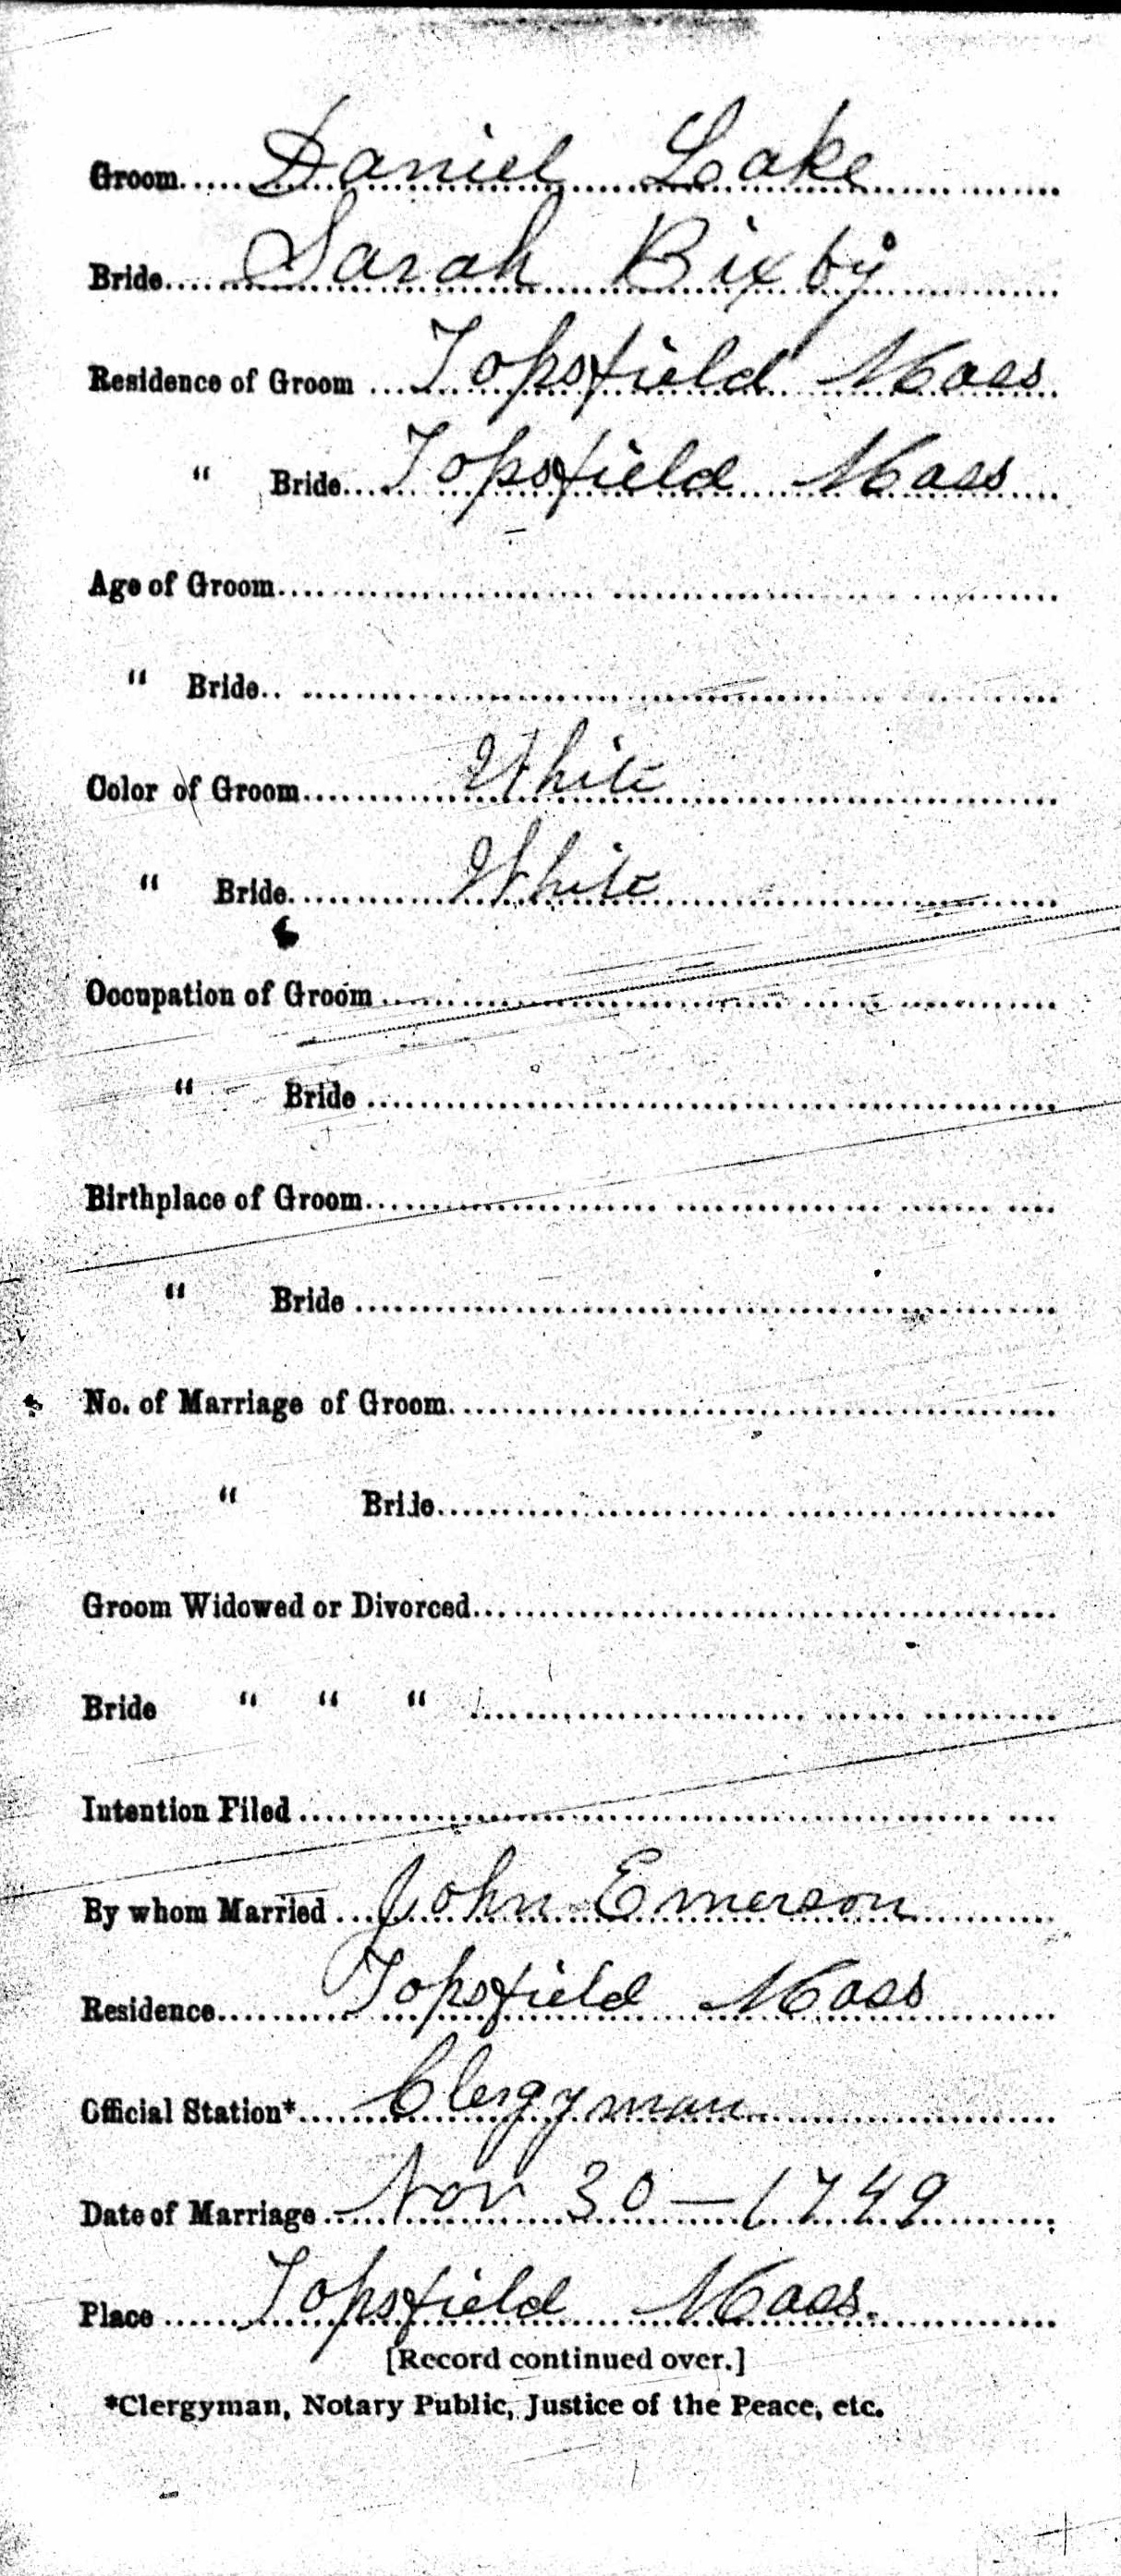 Groom Daniel Lake
Bride Sarah Bixby
Residence of Groom Topsfield Mass
" Bride Topsfield Mass
Age of Groom
" Bride
Color of Groom White
" Bride White
Occupation of Groom
" Bride
Birthplace of Groom
" Bride
No. of Marriage of Groom
" Bride
Groom Widowed or Divorced
Bride " " "
Intention Filed
By whom Married John Emerson
Residence Topsfield Mass
Official Station* Clergyman
Date of Marriage Nov 30 — 1749
Place Topsfield Mass.
[Record continued over.]
*Clergyman, Notary Public, Justice of the Peace, etc.